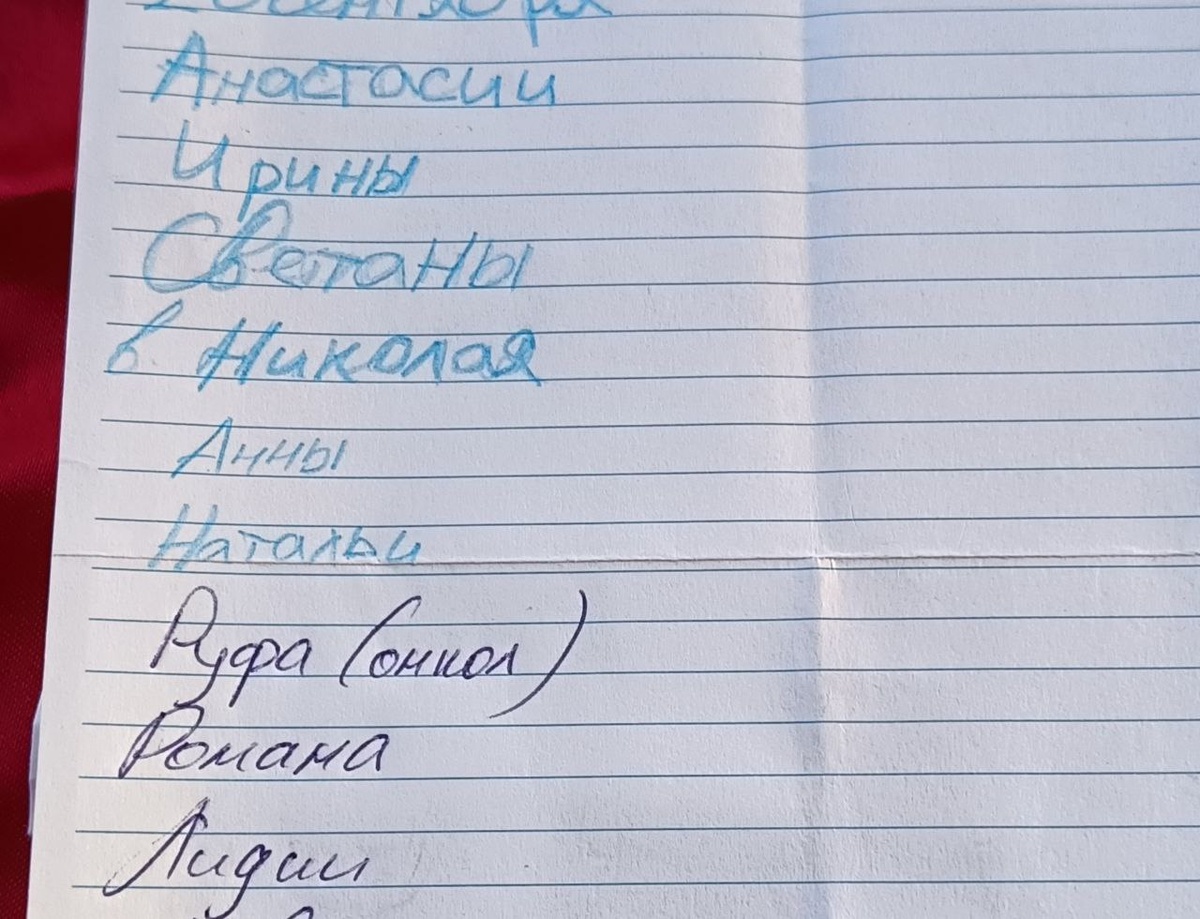 Анастасии
Ирины
Светаны
в. Николая
Анны
Натальи
Руфа (онкол)
Романа
Лидии